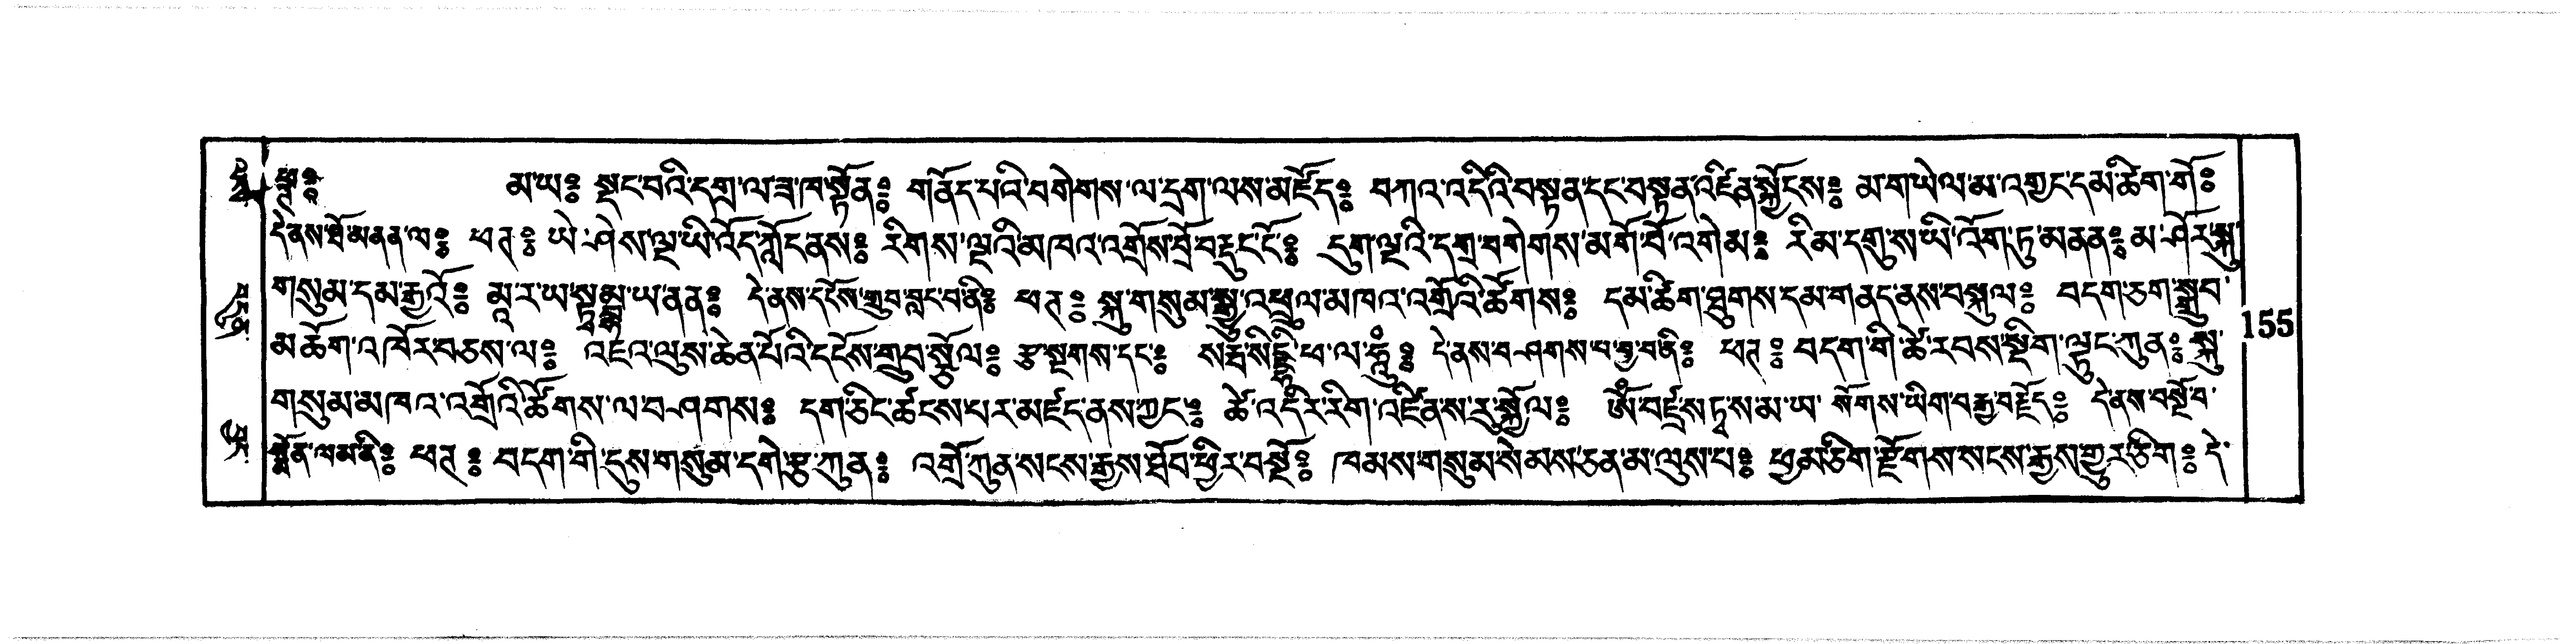 མ་ཡ༔ སྡང་བའི་དགྲ་ལ་ཟ་ཁ་སྟོན༔ གནོད་པའི་བགེགས་ལ་དྲག་ལས་མཛོད༔ བཀའ་འདིའི་བསྟན་དང་བསྟན་འཛིན་སྐྱོངས༔ མ་གཡེལ་མ་འགྱང་དམ་ཚིག་གོ༔
དེ་ནས་ཐོ་མནན་ལ༔ ཕཊ༔ ཡེ་ཤེས་ལྔ་ཡི་འོད་ཀློང་ནས༔ རིགས་ལྔའི་མཁའ་འགྲོས་བྲོ་བརྡུང་ངོ༔ དུག་ལྔའི་དགྲ་བགེགས་མགོ་བོ་འགེམ༔ རིམ་དགུ་ས་ཡི་འོག་ཏུ་མནན༔ མ་ཤོར་སྐུ་
གསུམ་དམ་རྒྱའོ༔ མཱ་ར་ཡ་སྟམྦྷ་ཡ་ནན༔ དེ་ནས་དངོས་གྲུབ་བླང་བ་ནི༔ ཕཊ༔ སྐུ་གསུམ་སྒྱུ་འཕྲུལ་མཁའ་འགྲོའི་ཚོགས༔ དམ་ཚིག་ཐུགས་དམ་གནད་ནས་བསྐུལ༔ བདག་ཅག་སྒྲུབ་
མཆོག་འཁོར་བཅས་ལ༔ འཇའ་ལུས་ཆེན་པོའི་དངོས་གྲུབ་སྩོལ༔ རྩ་སྔགས་དང༔ སརྦ་སིདྡྷི་ཕ་ལ་ཧཱུྃ༔ དེ་ནས་བཤགས་པ་བྱ་བ་ནི༔ ཕཊ༔ བདག་གི་ཚེ་རབས་སྡིག་ལྟུང་ཀུན༔ སྐུ་
གསུམ་མཁའ་འགྲོའི་ཚོགས་ལ་བཤགས༔ དག་ཅིང་ཚངས་པར་མཛད་ནས་ཀྱང༔ ཚེ་འདིར་རིག་འཛིན་ས་རུ་སྐྱོལ༔ ༀ་བཛྲ་ས་ཏྭ་ས་མ་ཡ་ སོགས་ཡིག་བརྒྱ་བརྗོད༔ དེ་ནས་བསྔོ་བ་
སྨོན་ལམ་ནི༔ ཕཊ༔ བདག་གི་དུས་གསུམ་དགེ་རྩ་ཀུན༔ འགྲོ་ཀུན་སངས་རྒྱས་ཐོབ་ཕྱིར་བསྔོ༔ ཁམས་གསུམ་སེམས་ཅན་མ་ལུས་པ༔ ཕྱམ་ཅིག་རྫོགས་སངས་རྒྱས་གྱུར་ཅིག༔ དེ་
155